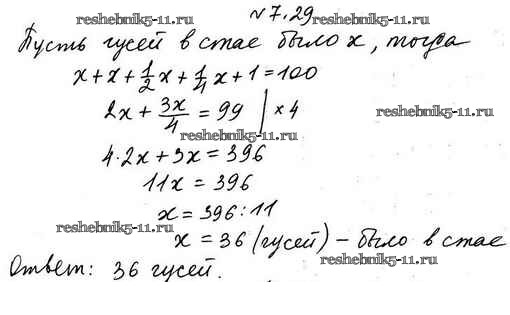 reshebnik5-11.ru №7.29 reshebnik5-11.ru
Пусть гусей в стае было x, тогда
x+x+1/2x+1/4x+1=100
2x+3x/4=99 |×4 reshebnik5-11.ru
reshebnik5-11.ru
4·2x+3x=396
11x=396
x=396:11
reshebnik5-11.ru
x=36 (гусей) – было в стае
reshebnik5-11.ru
Ответ: 36 гусей.